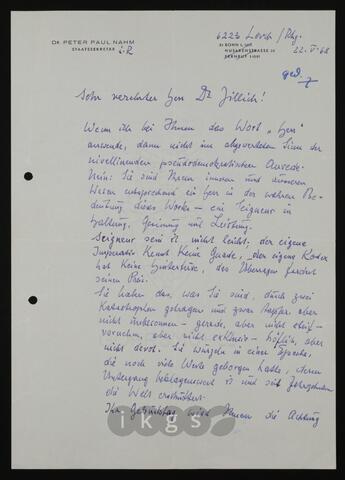 DR. PETER PAUL NAHM
STAATSSEKRETÄR i.R
6223 Lorch/Rhg.
53 BONN 1, DEN
HUSARENSTRASSE 20
FERNRUF
22. V. 68
ged.
Sehr verehrter Herr Dr Zillich!
Wenn ich bei Ihnen das Wort „Herr"
anwende, dann nicht im abgewerteten Sinn der
nivellierenden pseudodemokratischen Anrede.
Nein: Sie sind Ihrem inneren und äusseren
Wesen entsprechend ein Herr in der wahren Be-
deutung dieses Wortes – ein Seigneur in
Haltung, Gesinnung und Leistung.
Seigneur sein ist nicht leicht, der eigene
Imperativ kennt keine Gnade, der eigene Kodex
hat keine Hintertüre, das Überragen fordert
seinen Preis.
Sie haben das, was Sie sind, durch zwei
Katastrophen getragen und zwar tapfer, aber
nicht unbesonnen – gerade, aber nicht stur –
vornehm, aber nicht exklusiv – höflich, aber
nicht devot. Sie wurzeln in einer Epoche,
die noch viele Werte geborgen hatte, deren
Untergang beklagenswert ist und seit Jahrzehnten
die Welt erschüttert.
Ihr Geburtstag wird Ihnen die Achtung
ikgs